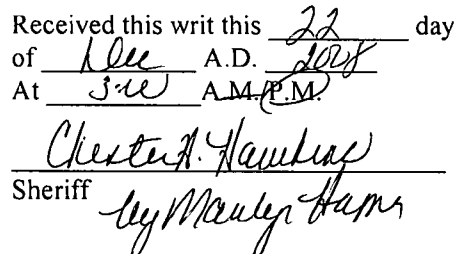 Received this writ this 22 day
of Dec A.D. 2008
At 3:00 A.M./P.M.
Chester A. Hawkins
Sheriff by Marilyn Hamm